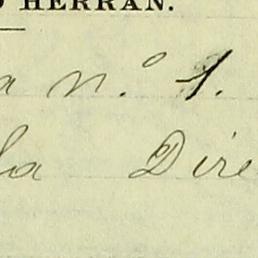 HERRAN.
a n.º 1.
la Dire